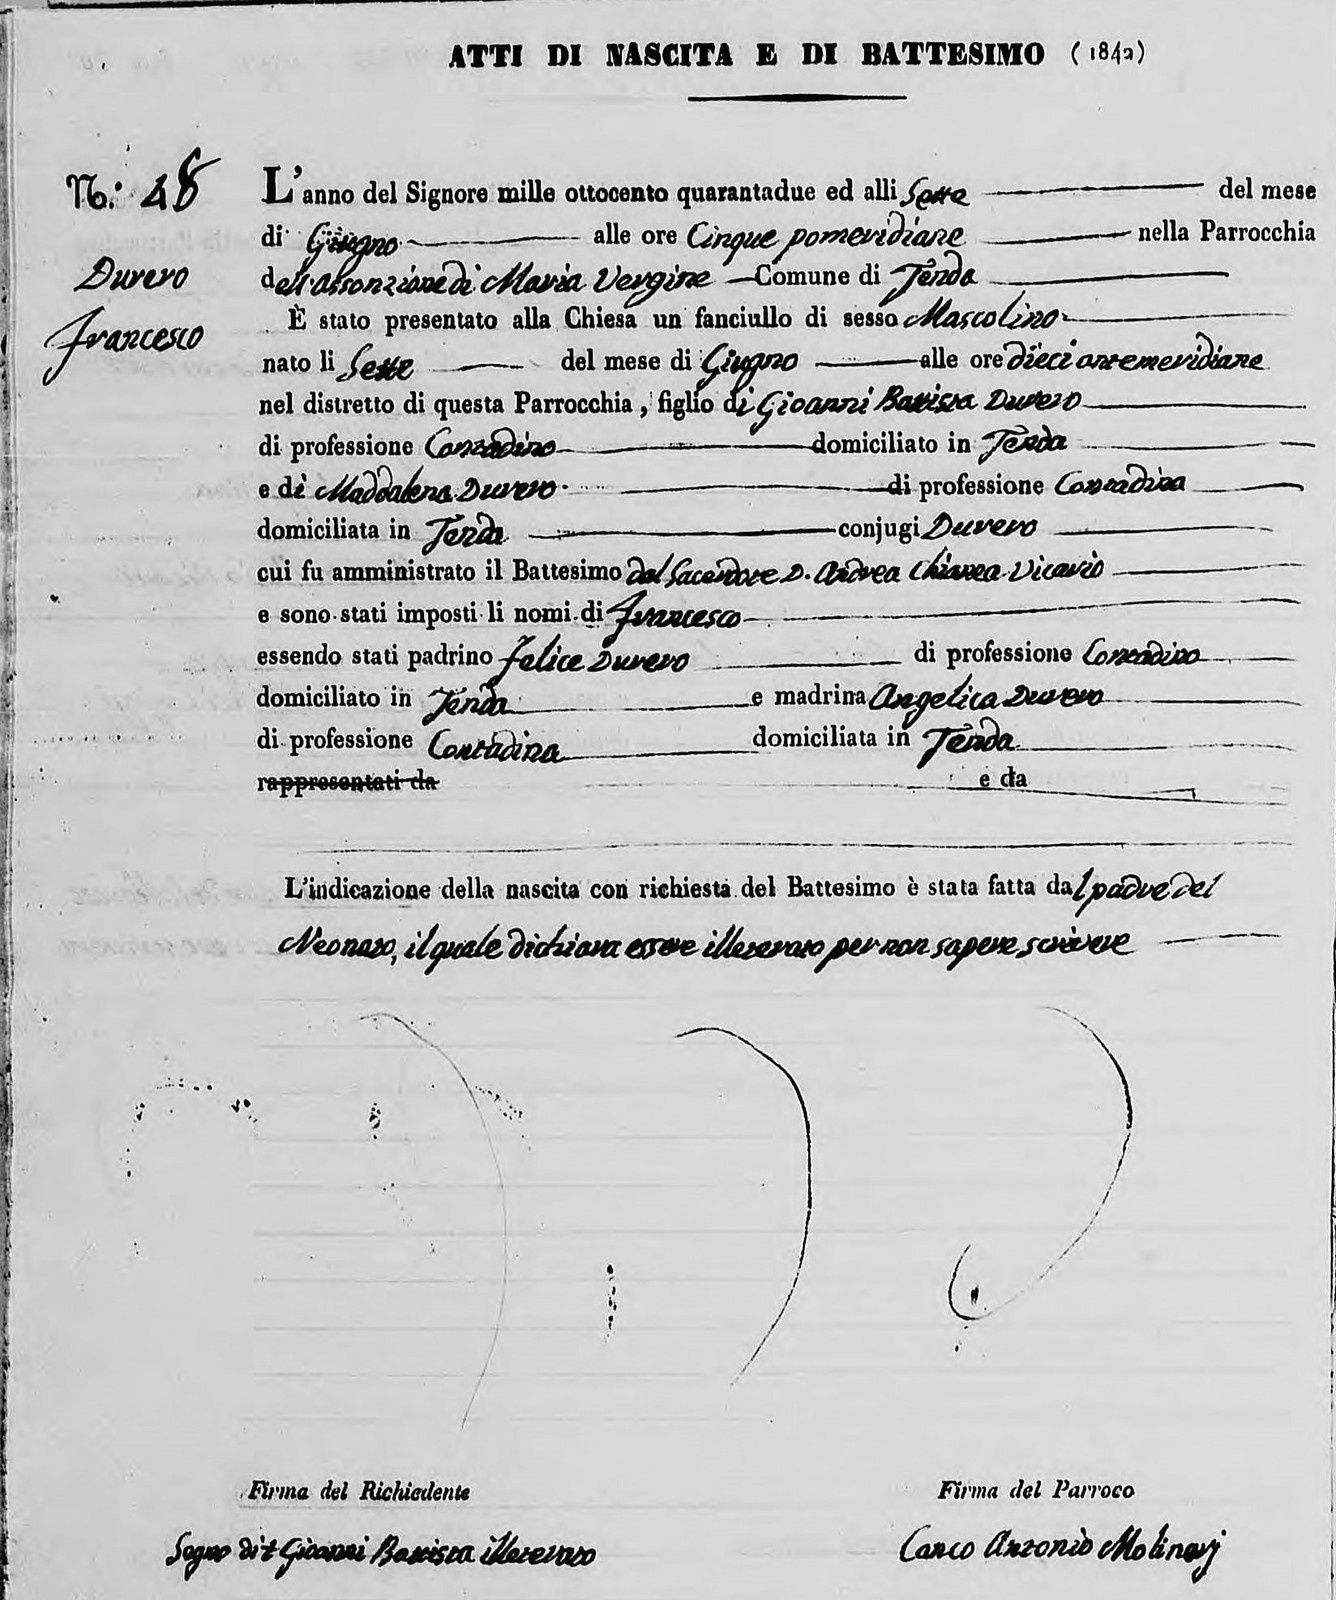 ATTI DI NASCITA E DI BATTESIMO (1842)
N.: 48
L'anno del Signore mille ottocento quarantadue ed alli Sette del mese
di Giugno alle ore Cinque pomeridiane nella Parrocchia
Durero
dell'Assonzione di Maria Vergine Comune di Tenda
Francesco
È stato presentato alla Chiesa un fanciullo di sesso Mascolino
nato li Sette del mese di Giugno alle ore dieci antemeridiane
nel distretto di questa Parrocchia, figlio di Gioanni Battista Durero
di professione Contadino domiciliato in Tenda
e di Maddalena Durero di professione Contadina
domiciliata in Tenda conjugi Durero
cui fu amministrato il Battesimo dal Sacerdote D. Andrea Chianea Vicario
e sono stati imposti li nomi di Francesco
essendo stati padrino Felice Durero di professione Contadino
domiciliato in Tenda e madrina Angelica Durero
di professione Contadina domiciliata in Tenda
rappresentati da e da
L'indicazione della nascita con richiesta del Battesimo è stata fatta dal padre del
Neonato, il quale dichiara essere illeterato per non sapere scrivere
Firma del Richiedente Firma del Parroco
Segno di + Gioanni Battista illeterato Antonio Molinarj